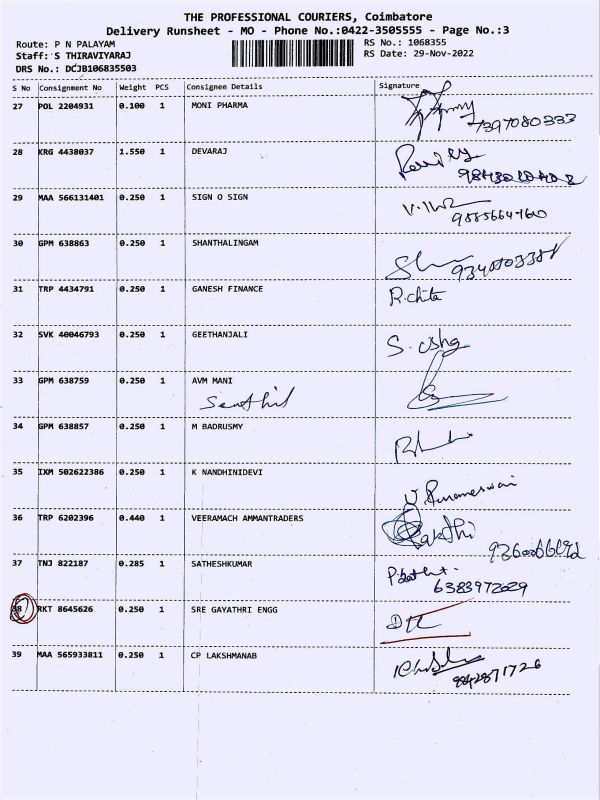 THE PROFESSIONAL COURIERS, Coimbatore
Delivery Runsheet - MO - Phone No.:0422-3505555 - Page No.:3
Route: P N PALAYAM
Staff: S THIRAVIYARAJ
DRS No.: DCJB106835503
RS No.: 1068355
RS Date: 29-Nov-2022
S No Consignment No Weight PCS Consignee Details Signature
27 POL 2204931 0.100 1 MONI PHARMA
7397080333
28 KRG 4438037 1.550 1 DEVARAJ
29 MAA 566131401 0.250 1 SIGN O SIGN
30 GPM 638863 0.250 1 SHANTHALINGAM
31 TRP 4434791 0.250 1 GANESH FINANCE R.chita
32 SVK 40046793 0.250 1 GEETHANJALI
33 GPM 638759 0.250 1 AVM MANI
Senthil
34 GPM 638857 0.250 1 M BADRUSMY
35 IXM 502622386 0.250 1 K NANDHINIDEVI
36 TRP 6202396 0.440 1 VEERAMACH AMMANTRADERS
37 TNJ 822187 0.285 1 SATHESHKUMAR
6383972029
38 RKT 8645626 0.250 1 SRE GAYATHRI ENGG
39 MAA 565933811 0.250 1 CP LAKSHMANAB
9842871726